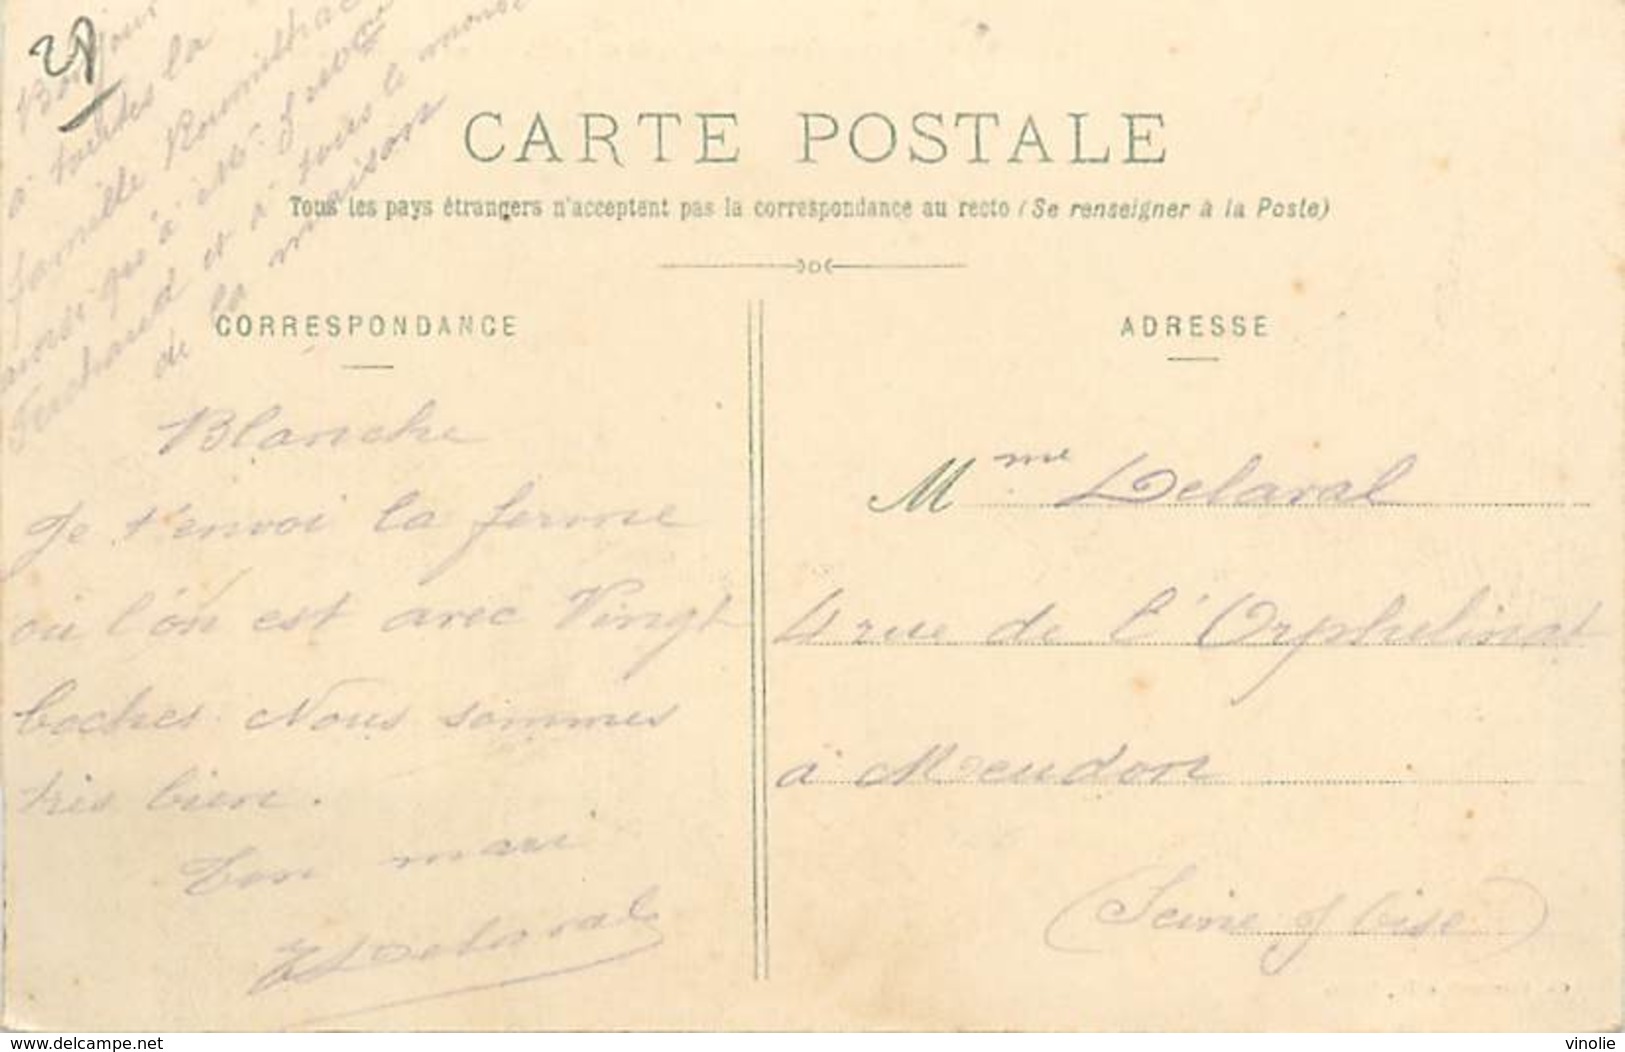 28
Bonjour
à toutes la
famille
ainsi qu'à Mr.
et à tous le monde
de la maison
CARTE POSTALE
Tous les pays étrangers n'acceptent pas la correspondance au recto (Se renseigner à la Poste)
CORRESPONDANCE
Blanche
Je t'envoi la ferme
où l'on est avec Vingt
boches. Nous sommes
très bien.
Ton mari
Delaval
ADRESSE
Mme Delaval
4 rue de l'Orphelinat
à Meudon
(Seine & Oise)
www.delcampe.net
vinolie